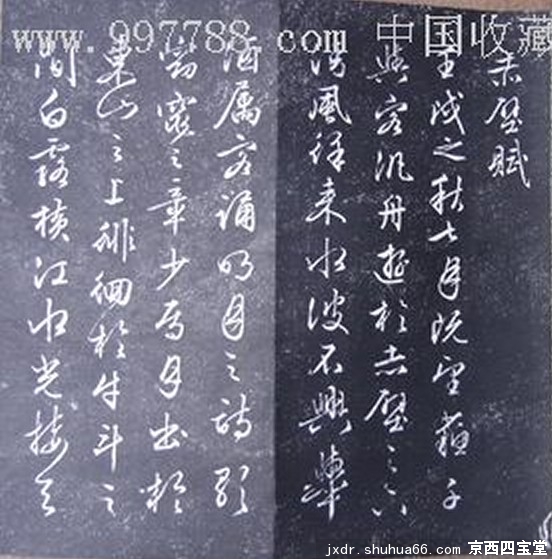 www.997788.com 中国收藏
赤壁賦
壬戌之秋七月既望蘇子
與客汎舟遊於赤壁之下
清風徐來水波不興舉
酒属客誦明月之詩歌
窈窕之章少焉月出於
東山之上徘徊於牛斗之
間白露横江水光接天
jxdr.shuhua66.com 京西四宝堂